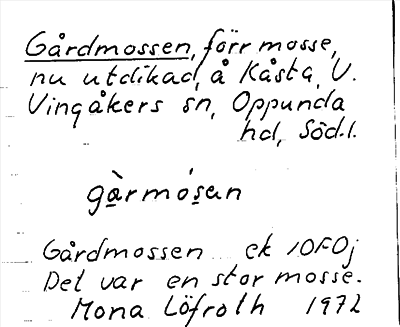 Gårdmossen, förr mosse,
nu utdikad, å Kåsta, V.
Vingåkers sn, Oppunda
hd, Södl.
gàrmósen
Gårdmossen ek 10F0j
Det var en stor mosse.
Mona Löfroth 1972